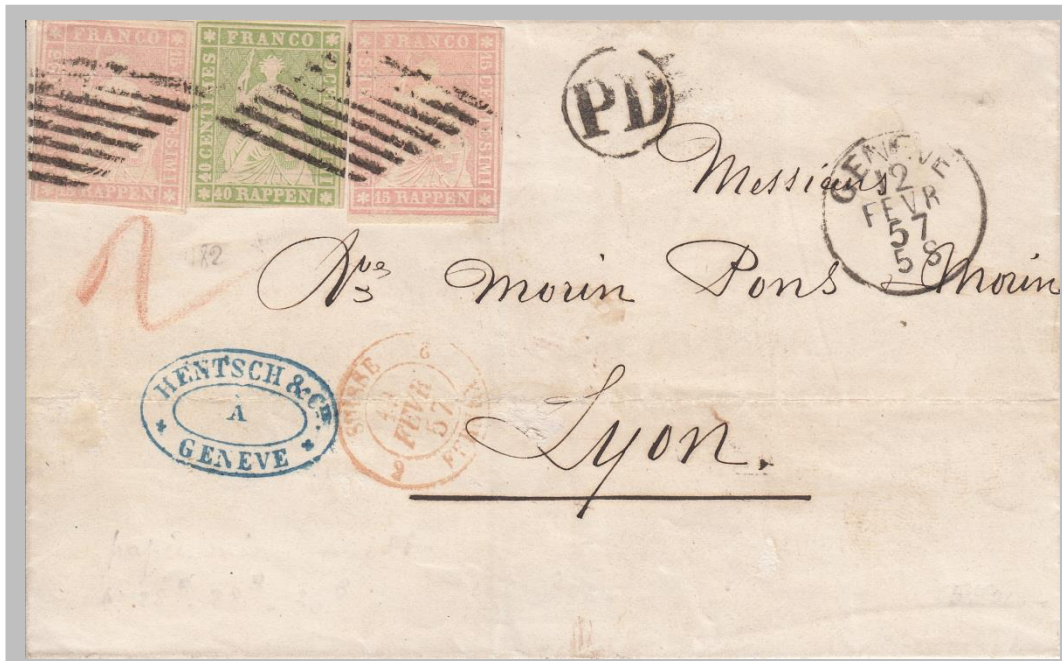 FRANCO
15 CENTESIMI
RAPPEN
FRANCO
40 CENTIMES
40 RAPPEN
FRANCO
15 CENTESIMI
15 RAPPEN
PD
GENEVE
12
FEVR
57
5 S
Messieurs
Morin Pons & Morin
2
182
Lyon.
HENTSCH & Cie
À
GENEVE
SUISSE
FEVR
57